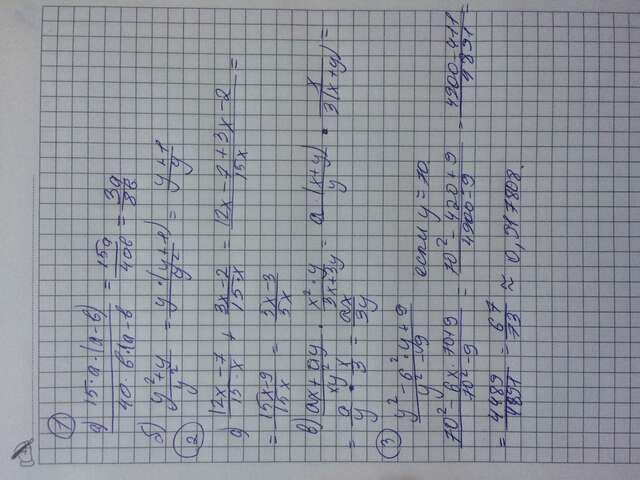 ①
а) 15·a·(a-b) / 40·b·(a-b = 15a / 40b = 3a / 8b
б) y²+y / y² = y·(y+1) / y² = y+1 / y
②
а) 12x-7 / 15x + 3x-2 / 15x = 12x-7+3x-2 / 15x =
= 15x-9 / 15x = 5x-3 / 5x
в) ax+ay / xy² · x²·y / 3x+3y = a(x+y) / y · x / 3(x+y) =
= a / y · x / 3 = ax / 3y
③ y²-6·y+9 / y²-9 если y=70
70²-6x70+9 / 70²-9 = 70²-420+9 / 4900-9 = 4900-411 / 4891 =
= 4489 / 4891 = 67 / 73 ≈ 0,917808.